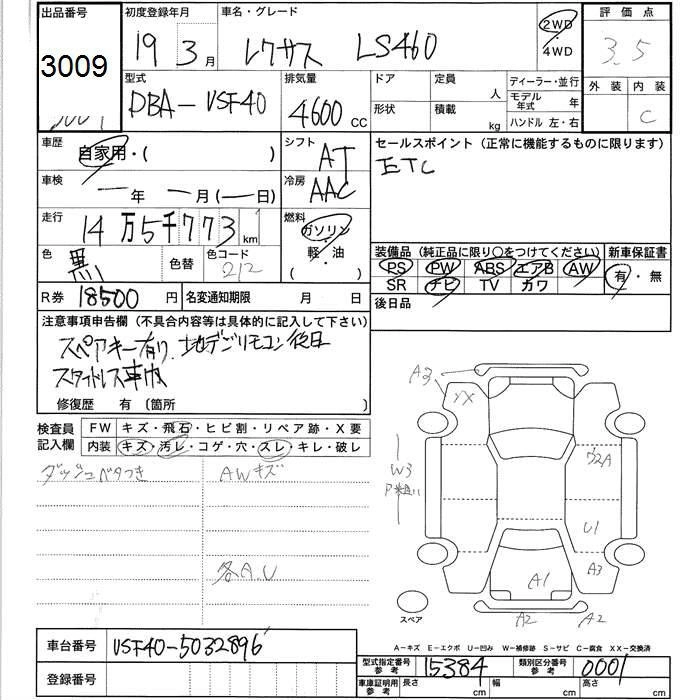 出品番号 初度登録年月 車名・グレード 2WD・4WD 評価点
3009 19 3月 レクサス LS460 3.5
型式 排気量 ドア 定員 人 ディーラー・並行 外装 内装
DBA-USF40 4600cc 形状 積載 kg モデル年式 年 C
ハンドル 左・右
車歴 自家用・( ) シフト AT セールスポイント（正常に機能するものに限ります）
ETC
車検 ー年ー月(ー日) 冷房 AAC
走行 14万5千773km 燃料 ガソリン・軽・油 ( )
色 黒 色替 色コード 212
装備品（純正品に限り○をつけてください） 新車保証書
PS PW ABS エアB AW 有・無
SR ナビ TV カワ
R券 18500円 名変通知期限 月 日 後日品
注意事項申告欄（不具合内容等は具体的に記入して下さい）
スペアキー有り、地デジリモコン後日
スタッドレス車載
修復歴 有 〔箇所 〕
検査員記入欄 FW キズ・飛石・ヒビ割・リペア跡・X要
内装 キズ・汚レ・コゲ・穴・スレ・キレ・破レ
ダッシュベタつき AWキズ
各A.U
A3
XX
W3
P
A
U1
A3
A1
A2 A2
スペア
A－キズ E－エクボ U－凹み W－補修跡 S－サビ C－腐食 XX－交換済
車台番号 USF40-5032896
登録番号
型式指定番号参考 15384 類別区分番号参考 0001
車庫証明用参考 長さ cm 幅 cm 高さ cm